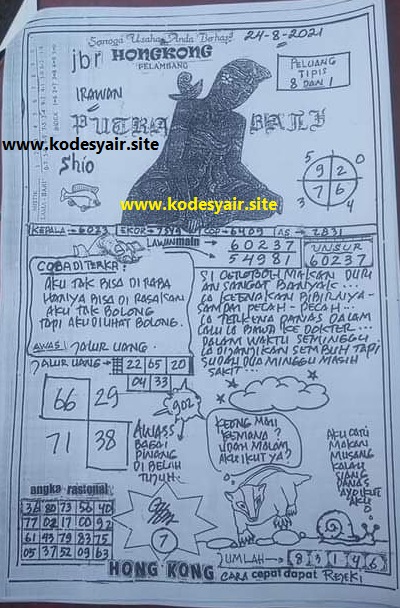 Semoga Usaha Anda Berhasil
24-8-2021
jbr HONGKONG
PELAMBANG
PELUANG
TIPIS
8 DAN 1
IRAWAN
PUTRA BALI
www.kodesyair.site
Shio
www.kodesyair.site
5 0
9 2
7 6
3 4
KEPALA → 6023 EKOR → 7519 COP → 6409 AS → 2831
LAWAN main → 60237
→ 54981
UNSUR
60237
COBA DITERKA:
AKU TAK BISA DI RABA
HANYA BISA DI RASAKAN
AKU TAK BOLONG
TAPI AKU DI LIHAT BOLONG.
AWAS! JALUR UANG.
SI GEROBOLI MAKAN DURI
AN SANGAT BANYAK...
IA KETENAKAN BIBIRNYA-
SAMPAI PECAH - PECAH...
IA TERKENA PANAS DALAM
LALU IA BAWA KE DOKTER...
DALAM WAKTU SEMINGGU
IA DI JANJIKAN SEMBUH TAPI
SUDAH DUA MINGGU MASIH
SAKIT...
JALUR UANG → 22 65 20
04 33
66 29
71 38
902
AWASS
BAGAI
PINANG
DI BELAH
TUJUH
KEONG MAU
KEMANA?
UDAH MALAM
AKU IKUT YA?
AKU CARI
MAKAN
MUSANG
KALAU
YANG
PANAS
AYO IKUT
AKU
angka rasional
36 80 73 56 40
77 02 17 00 92
61 43 79 83 75
05 37 52 09 63
7
JUMLAH → 8 3 1 4 6
HONG KONG CARA cepat dapat Rejeki